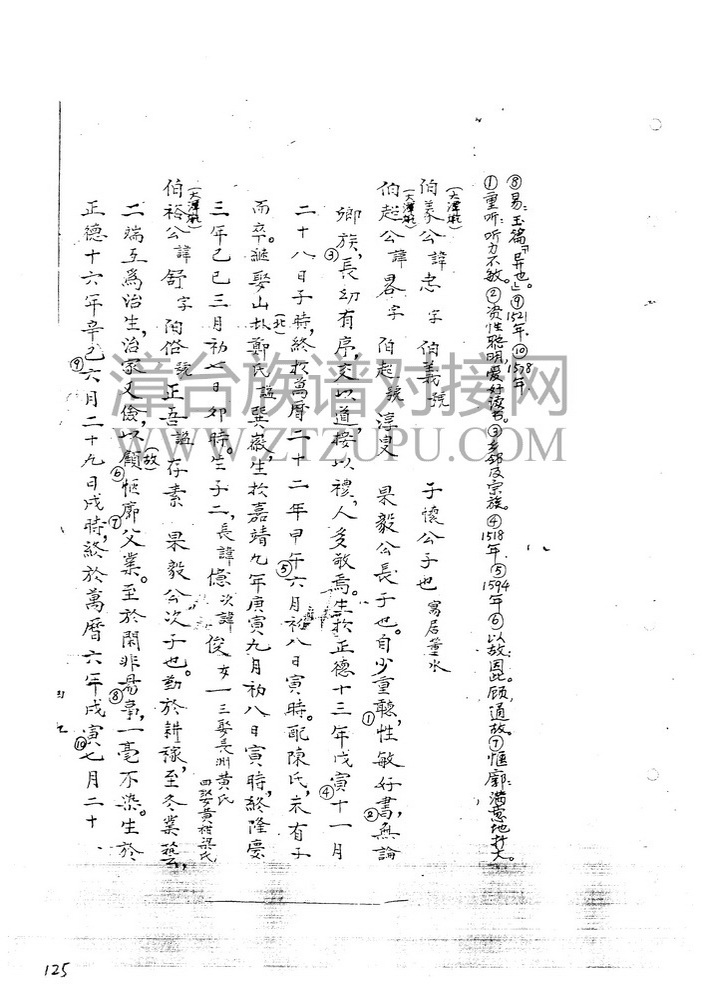 ⑧易:玉篇「异也」。⑨1521年.⑩1578年
①重听:听力不敏。②资性聪明,爱好读书。③乡邻及宗族。④1518年.⑤1594年⑥以故:因此。顾,通故。⑦惬廓:满意地扩大。
(大潭派)
伯義公諱忠 字 伯義號 子懷公子也 寓居董水
(大潭派)
伯起公諱畧字 伯起號 淳叟 果毅公長子也。自少重聽,①性敏好書,②無論
鄉族,③長幼有序。交以道,接以禮,人多敬焉。生於正德十三年戊寅④十一月
二十八日子時,終於萬曆二十二年甲午⑤六月初八日寅時。配陳氏,未有子
而卒。繼娶山(北)鄭氏諡巽薇,生於嘉靖九年庚寅九月初八日寅時,終隆慶
三年己巳三月初七日卯時。生子二,長諱憶次諱俊 女一 三娶長洲黃氏 四娶黃柑梁氏
(大潭派)
伯裕公諱舒 字 伯俗號 正吾諡 存素 果毅公次子也。勤於耕稼,至冬業
二端互為治生,治家又儉,以顧(故)⑥惬廓⑦父業。至於閑非易事,⑧一毫不染。生於
正德十六年辛巳⑨六月二十九日戌時,終於萬曆六年戊寅⑩七月二十
漳台族谱对接网
WWW.ZTZUPU.COM
125